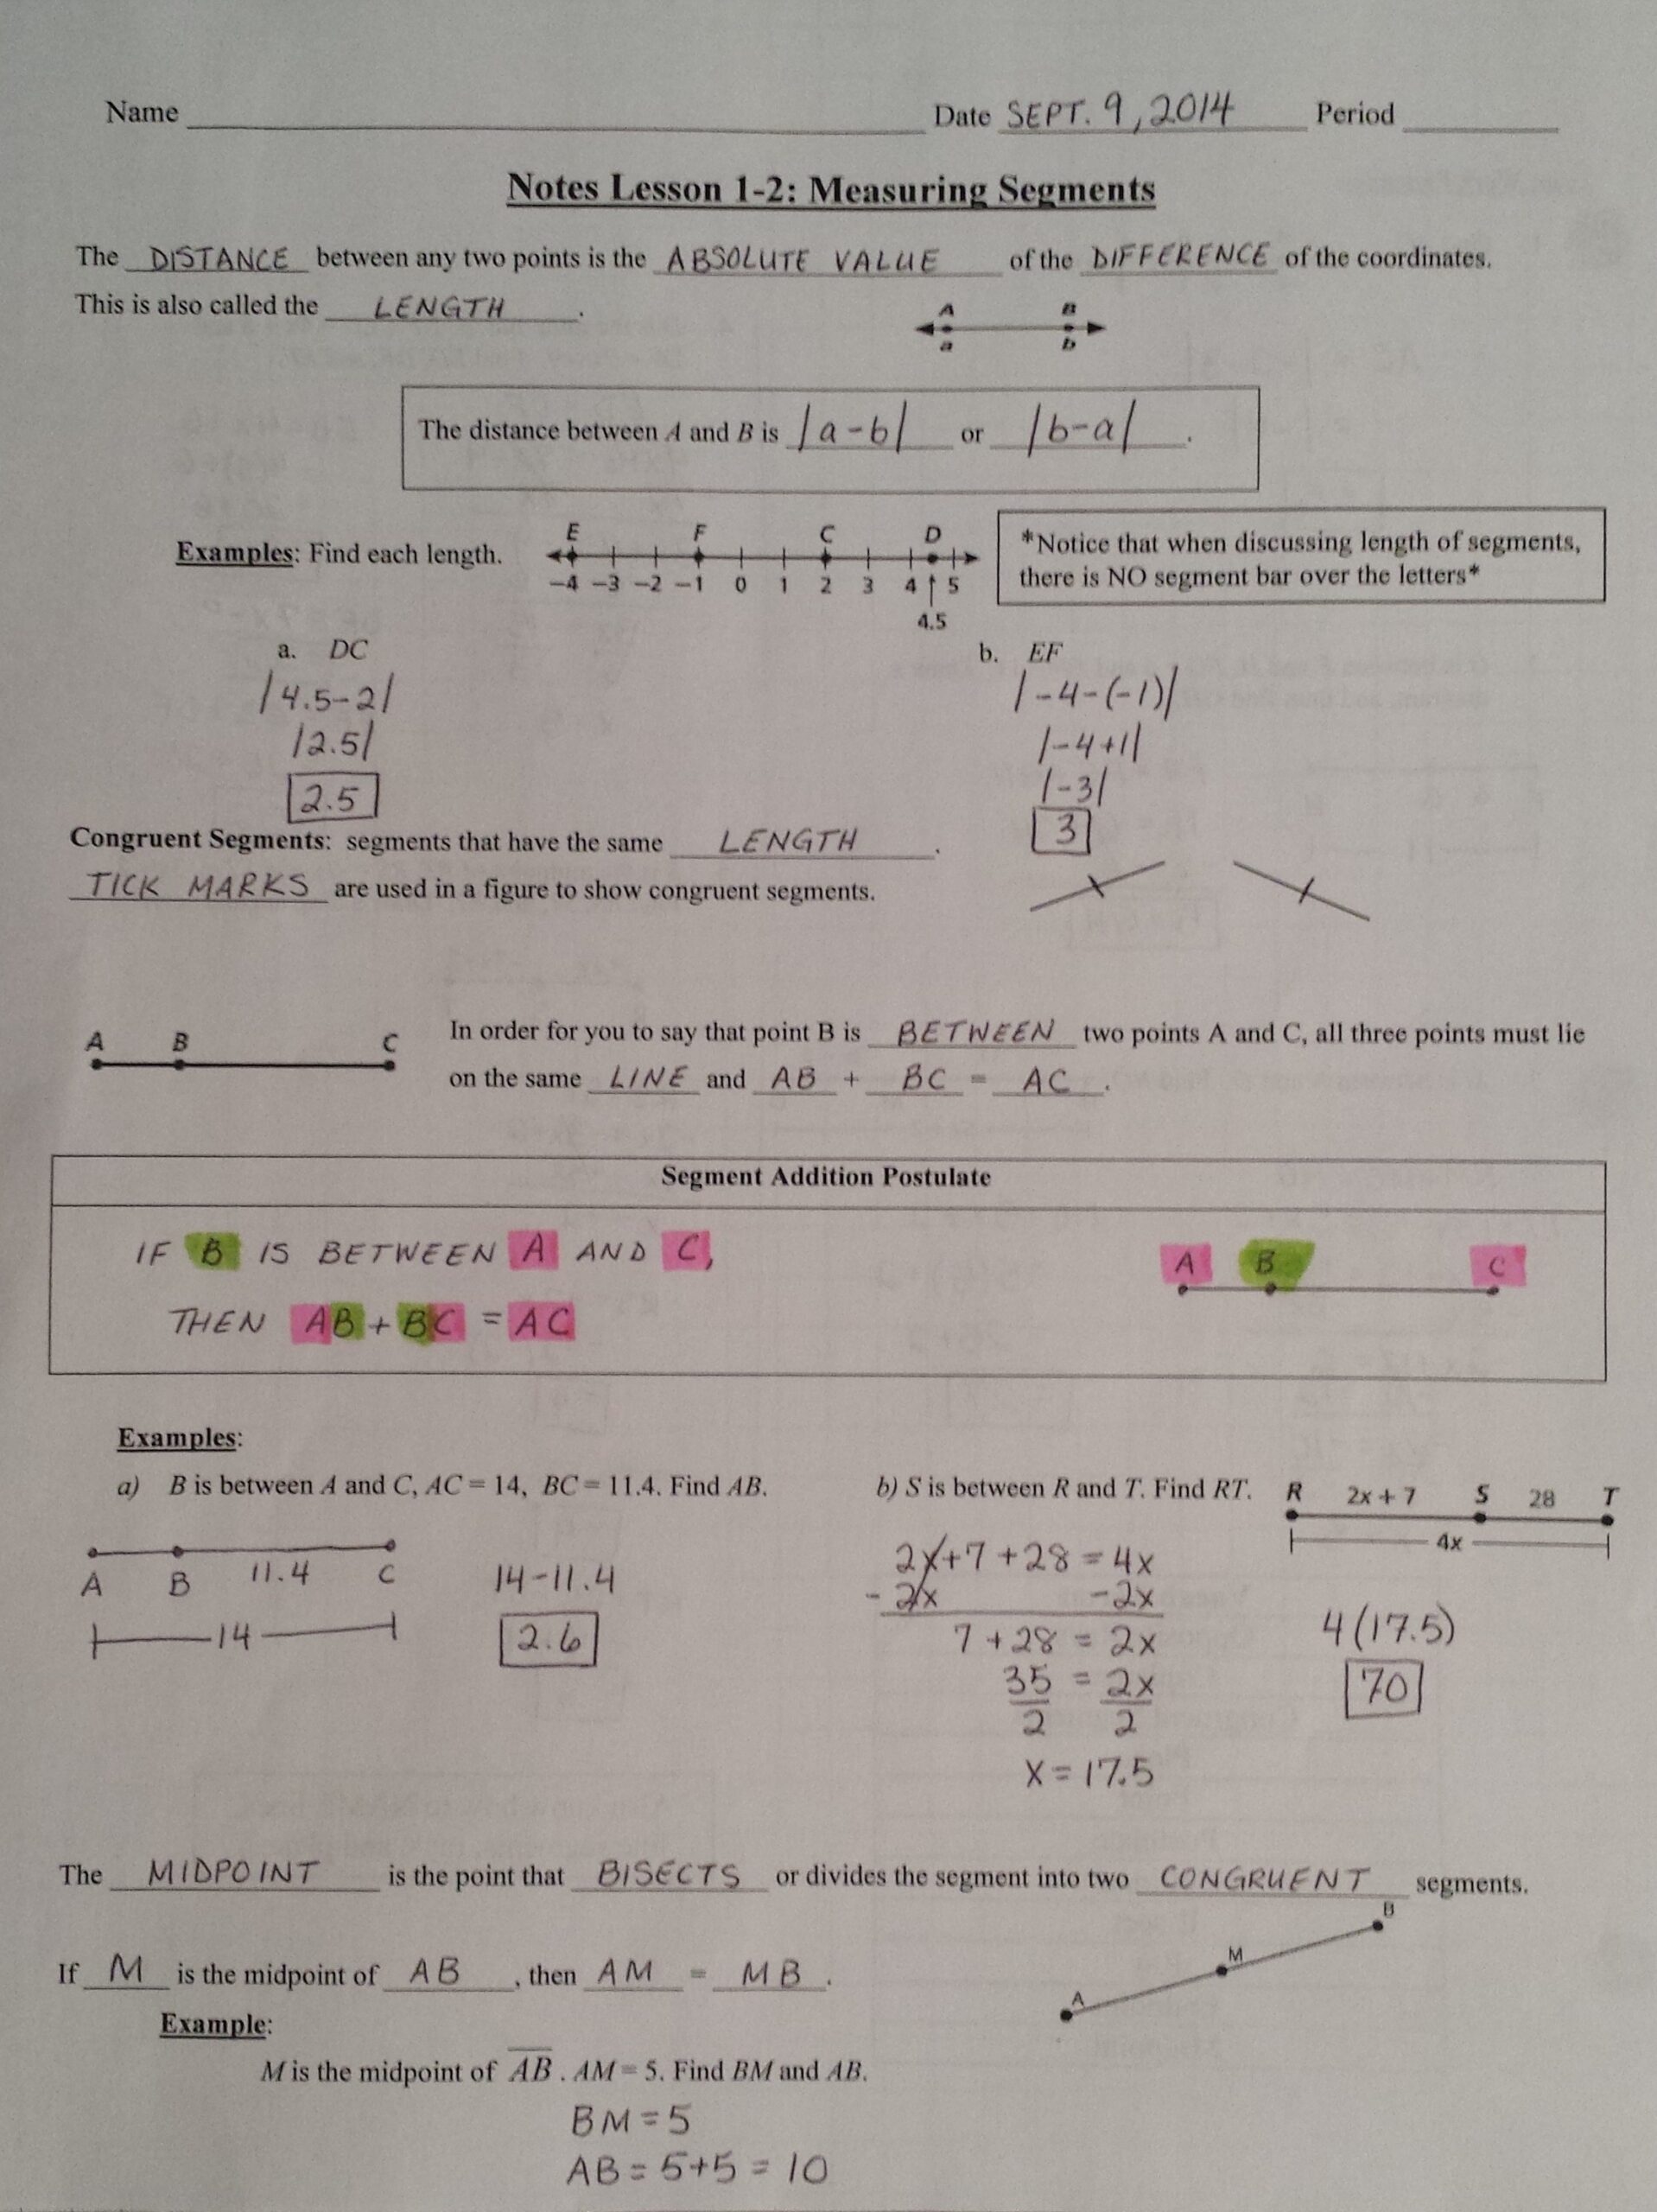 Name Date SEPT. 9, 2014 Period
Notes Lesson 1-2: Measuring Segments
The DISTANCE between any two points is the ABSOLUTE VALUE of the DIFFERENCE of the coordinates.
This is also called the LENGTH.
A B
a b
The distance between A and B is |a-b| or |b-a|.
Examples: Find each length.
E F C D
-4 -3 -2 -1 0 1 2 3 4 5
4.5
*Notice that when discussing length of segments,
there is NO segment bar over the letters*
a. DC
|4.5-2|
|2.5|
2.5
b. EF
|-4-(-1)|
|-4+1|
|-3|
3
Congruent Segments: segments that have the same LENGTH.
TICK MARKS are used in a figure to show congruent segments.
A B C
In order for you to say that point B is BETWEEN two points A and C, all three points must lie
on the same LINE and AB + BC = AC.
Segment Addition Postulate
IF B IS BETWEEN A AND C,
THEN AB + BC = AC
A B C
Examples:
a) B is between A and C, AC = 14, BC = 11.4. Find AB.
A B 11.4 C
14
14-11.4
2.6
b) S is between R and T. Find RT.
R 2x + 7 S 28 T
4x
2x+7+28 = 4x
-2x -2x
7+28 = 2x
35 = 2x
2 2
x = 17.5
4(17.5)
70
The MIDPOINT is the point that BISECTS or divides the segment into two CONGRUENT segments.
If M is the midpoint of AB, then AM = MB.
A M B
Example:
M is the midpoint of A̅B̅. AM = 5. Find BM and AB.
BM = 5
AB = 5+5 = 10